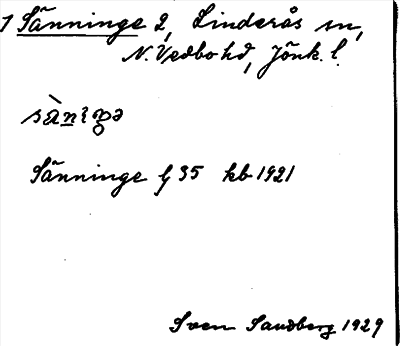 1 Sänninge 2, Linderås sn,
N. Vedbo hd, Jönk. l.
Sänninge lj 35 kb 1921
Sven Sandberg 1929